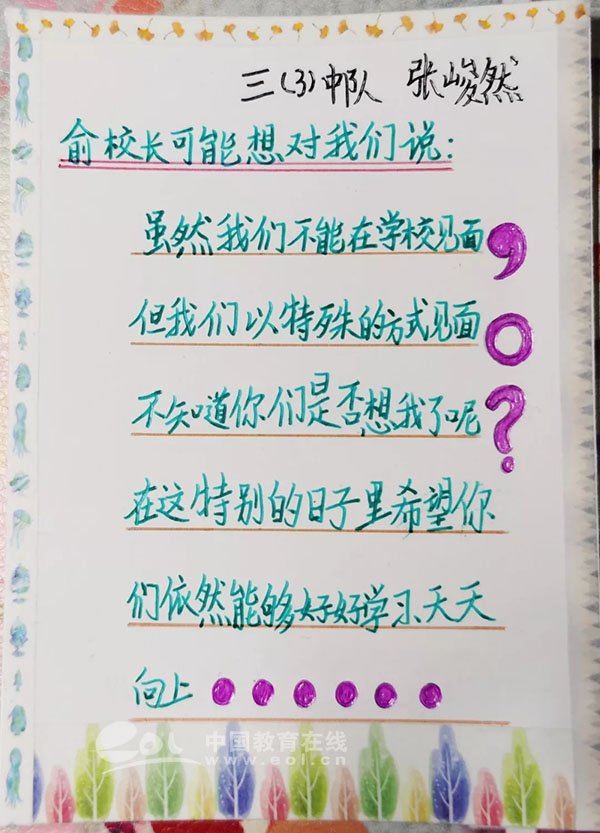 三(3)中队 张峻然
俞校长可能想对我们说:
虽然我们不能在学校见面,
但我们以特殊的方式见面。
不知道你们是否想我了呢?
在这特别的日子里希望你
们依然能够好好学习、天天
向上······
eol 中国教育在线
www.eol.cn